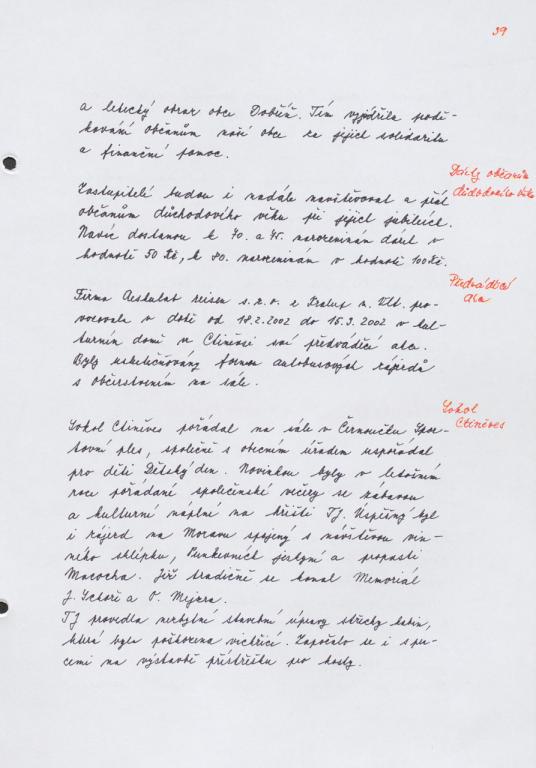 39
a letecký obraz obce Dobříň. Tím vyjádřila podě-
kování občanům naší obce za jejich solidaritu
a finanční pomoc.
Dárky občanům
důchodového věku
Zastupitelé budou i nadále navštěvovat a přát
občanům důchodového věku při jejich jubileích.
Navíc dostanou k 70. a 75. narozeninám dárek v
hodnotě 50 Kč, k 80. narozeninám v hodnotě 100 Kč.
Předváděcí
akce
Firma reisen s.r.o. z Kralup n. Vlt. pro-
vozovala v době od 18.2.2002 do 15.3.2002 v kul-
turním domě ve Ctiněvsi své předváděcí akce.
Byly uskutečňovány formou autobusových zájezdů
s občerstvením na sále.
Sokol
Ctiněves
Sokol Ctiněves pořádal na sále v Černoučku Spor-
tovní ples, společně s obecním úřadem uspořádal
pro děti Dětský den. Novinkou byly v letošním
roce pořádané společenské večery se zábavou
a kulturní náplní na hřišti TJ. Úspěšný byl
i zájezd na Moravu spojený s návštěvou vin-
ného sklípku, Punkevních jeskyní a propasti
Macocha. Již tradičně se konal Memoriál
J. a O. Mejzra.
TJ provedla nezbytné stavební úpravy střechy kabin,
která byla poškozena vichřicí. Započalo se i s pra-
cemi na výstavbě přístřešku pro hosty.